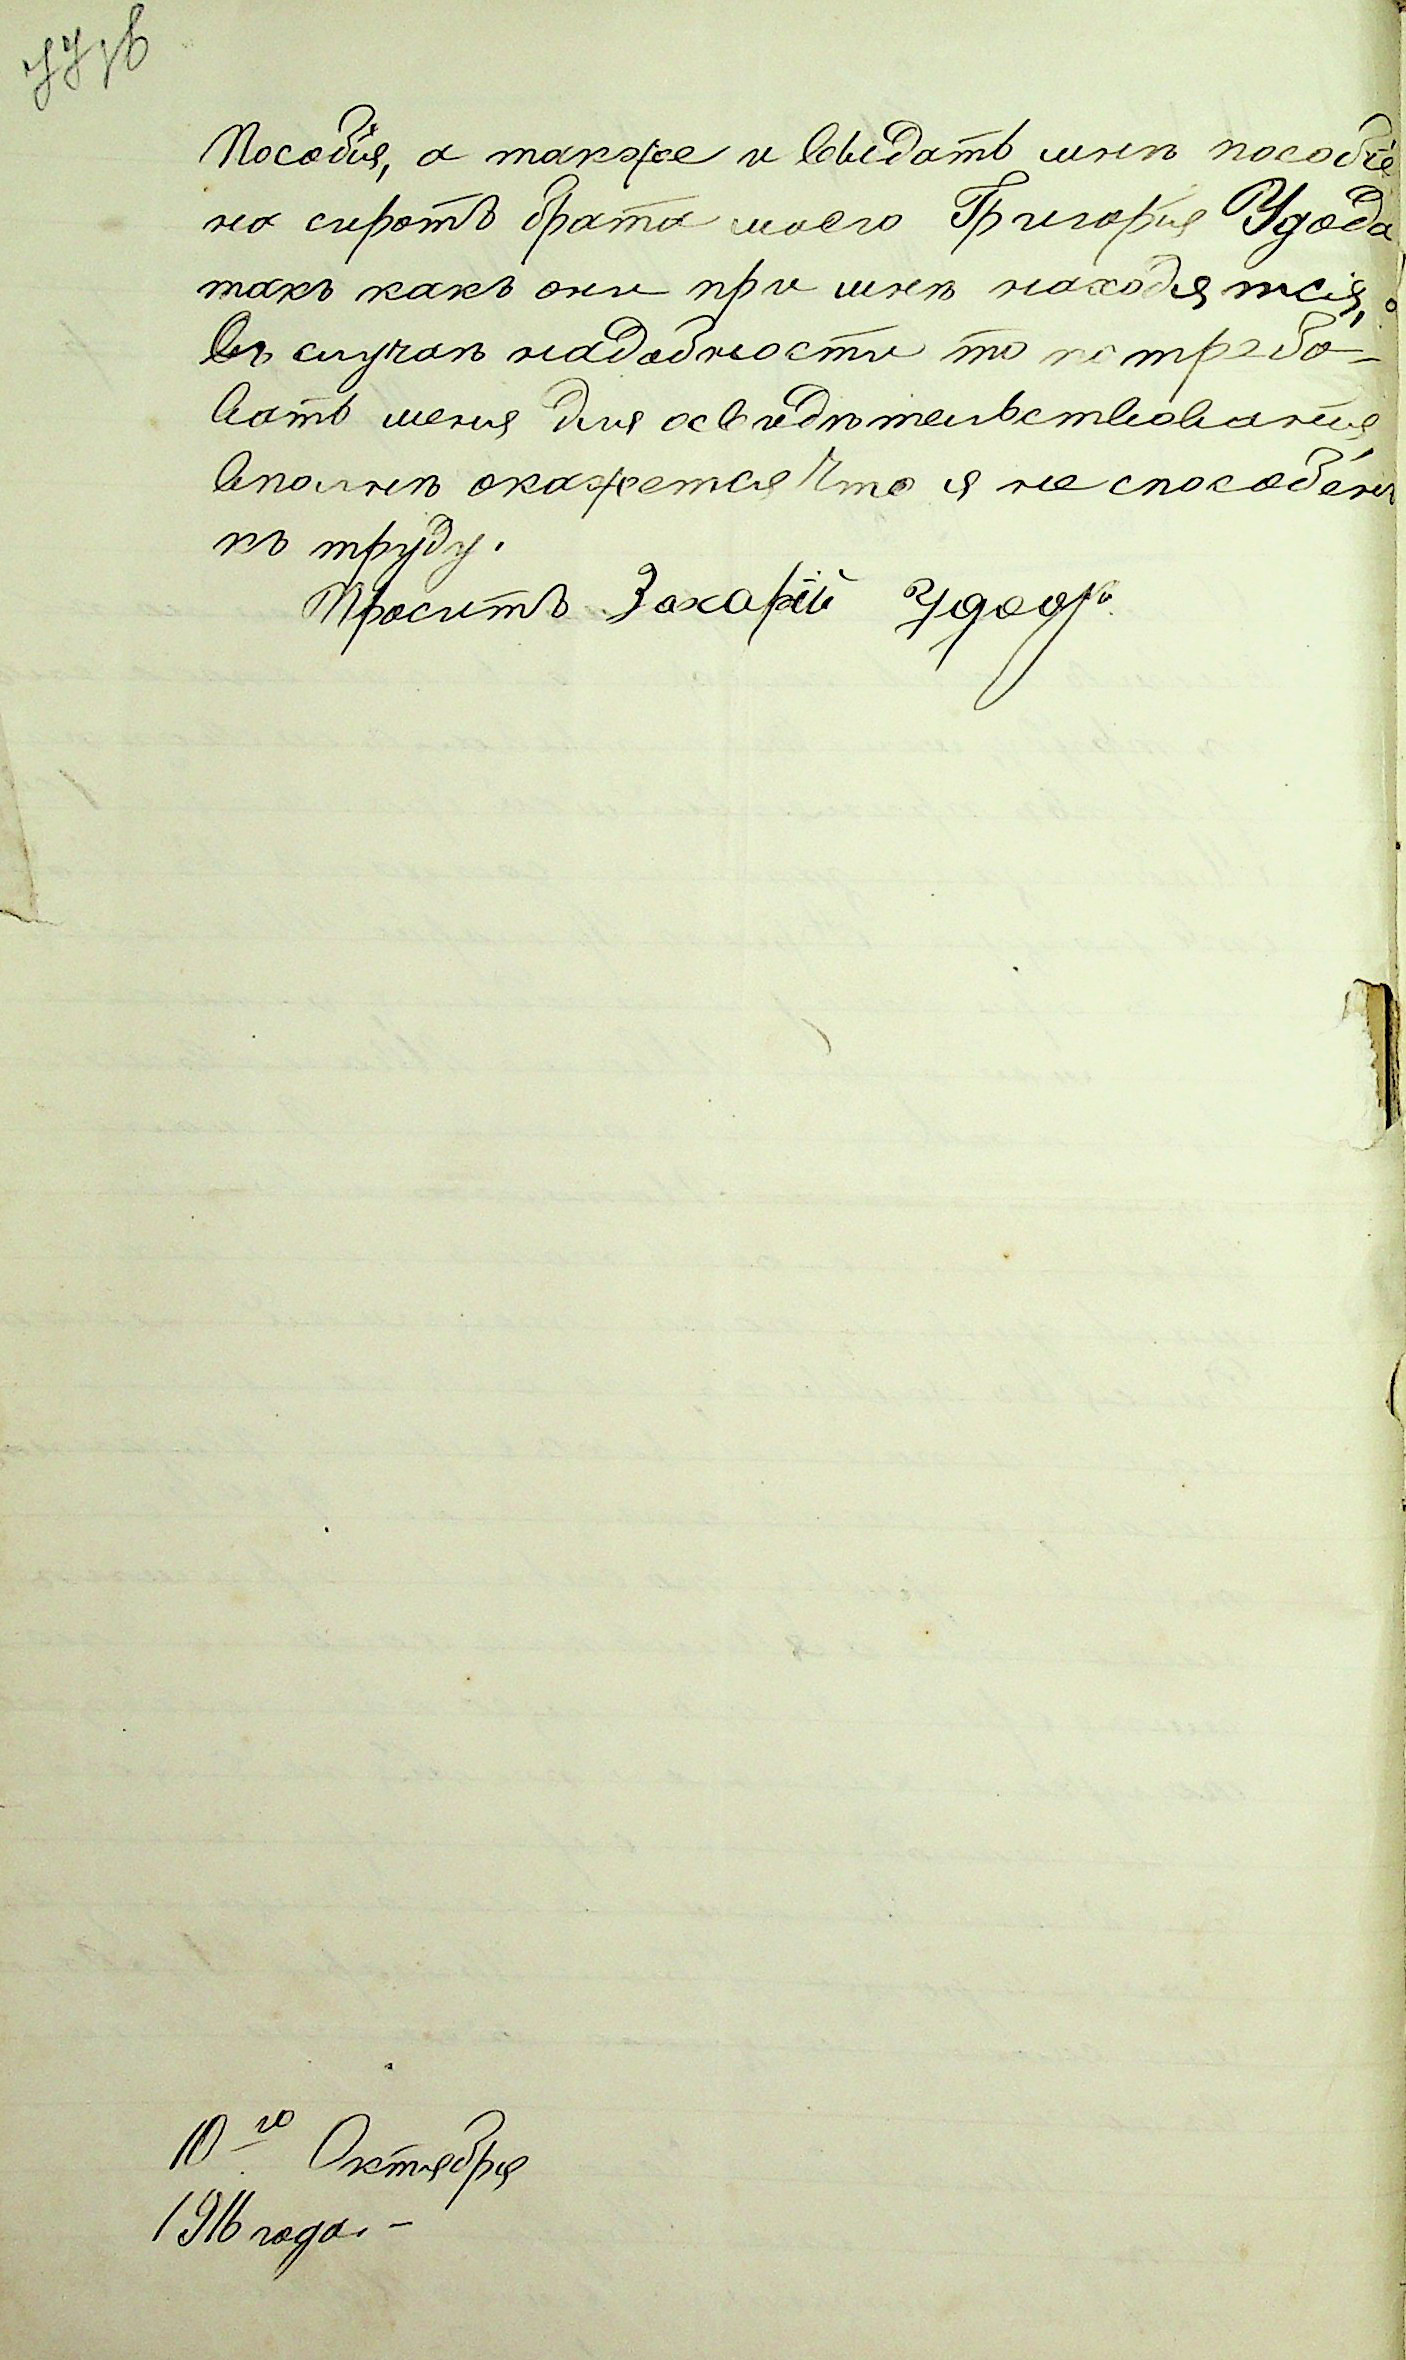 Пособія, а также и выдать мнѣ пособіе
на сиротъ брата моего Григорія Удода
такъ какъ они при мнѣ находятся,
въ случаѣ надобности то потребо-
вать меня для освидѣтельствованія,
вполнѣ окажется что я не способенъ
къ труду.
Проситъ Захарій Удодъ
10го Октября
1916 года. –